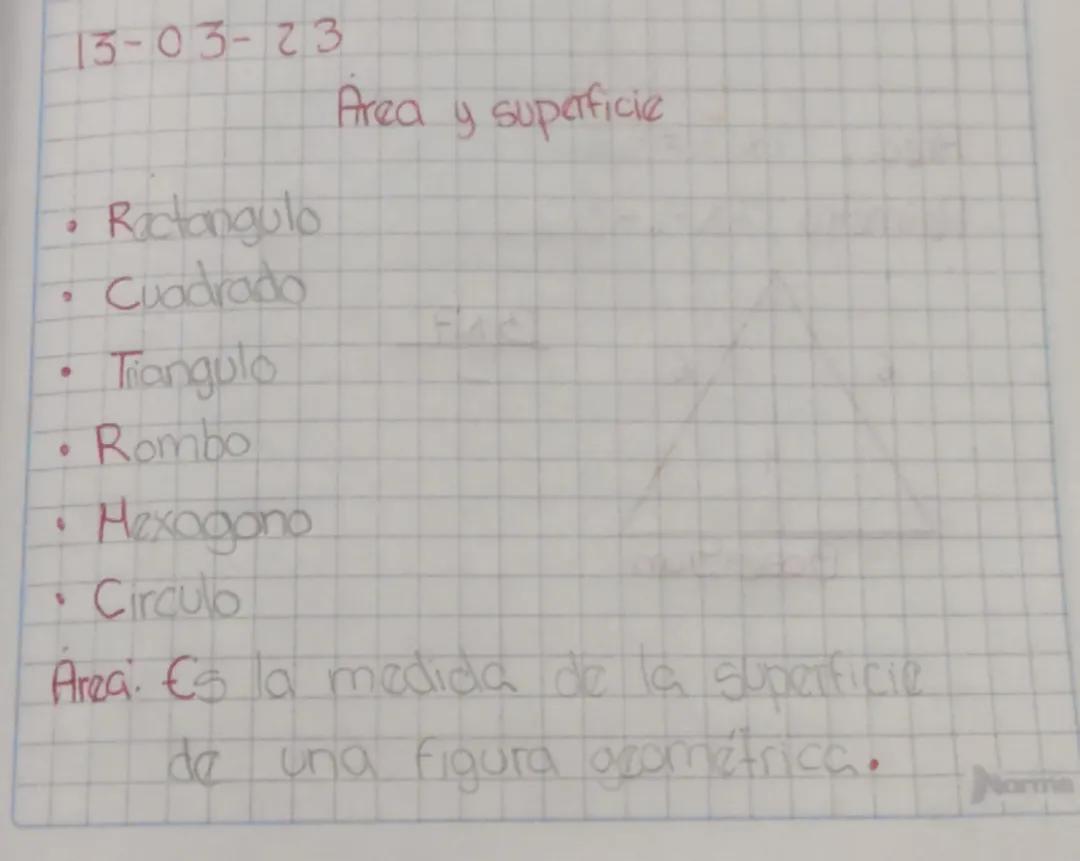 13-03-23
Área y superficie
• Rectangulo
• Cuadrado
• Triangulo
• Rombo
• Hexagono
• Circulo
Área: Es la medida de la superficie
de una figura geométrica.
Norma